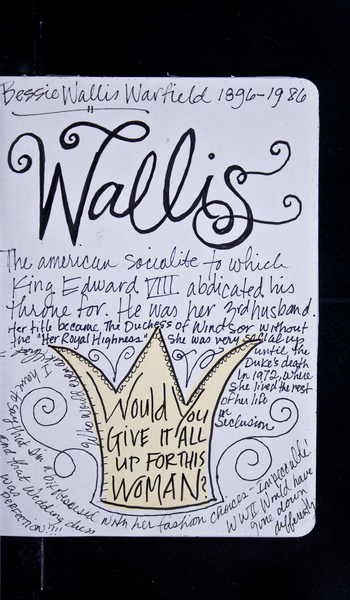 Bessie Wallis Warfield 1896-1986
Wallis
The american socialite to which
King Edward VIII abdicated his
throne for. He was her 3rd husband.
Her title became The Duchess of Windsor without
the "Her Royal Highness". She was very social up
until the
Duke's death
in 1972, where
she lived the rest
of her life
in
Seclusion
Would you
GIVE IT ALL
UP FOR THIS
WOMAN?
I have to say that I'm a bit obsessed with her fashion choices - Impeccable!
and that wedding dress
was PERFECTION!!!!
WWII would have
gone down
differently